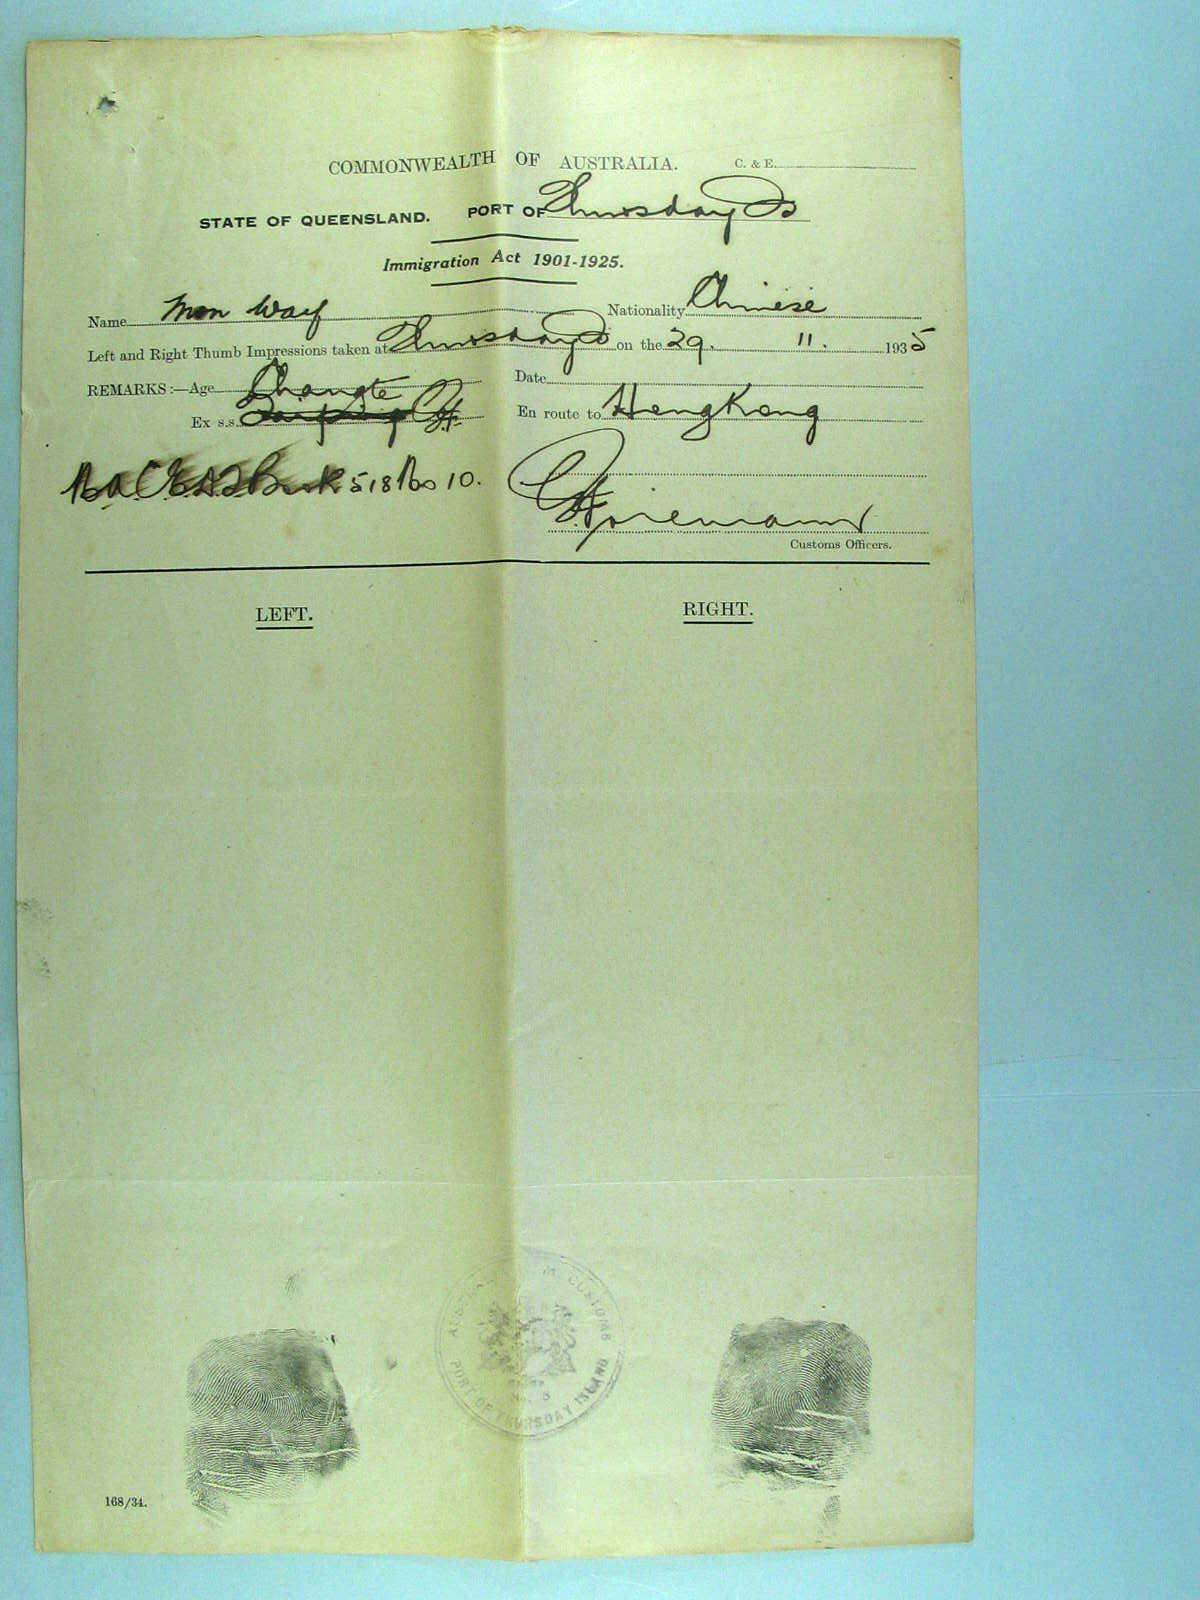 COMMONWEALTH OF AUSTRALIA. C. & E.
STATE OF QUEENSLAND. PORT OF Thursday Is
Immigration Act 1901-1925.
Name Mon Nationality Chinese
Left and Right Thumb Impressions taken at Thursday Is on the 29. 11. 1935
REMARKS:—Age Date
Changte
Ex s.s. Taiping En route to HongKong
Book 518 No 10.
Customs Officers.
LEFT. RIGHT.
CUSTOMS
PORT OF THURSDAY ISLAND
168/34.